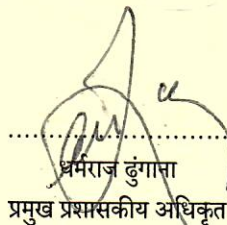 धर्मराज ढुंगाना
प्रमुख प्रशासकीय अधिकृत